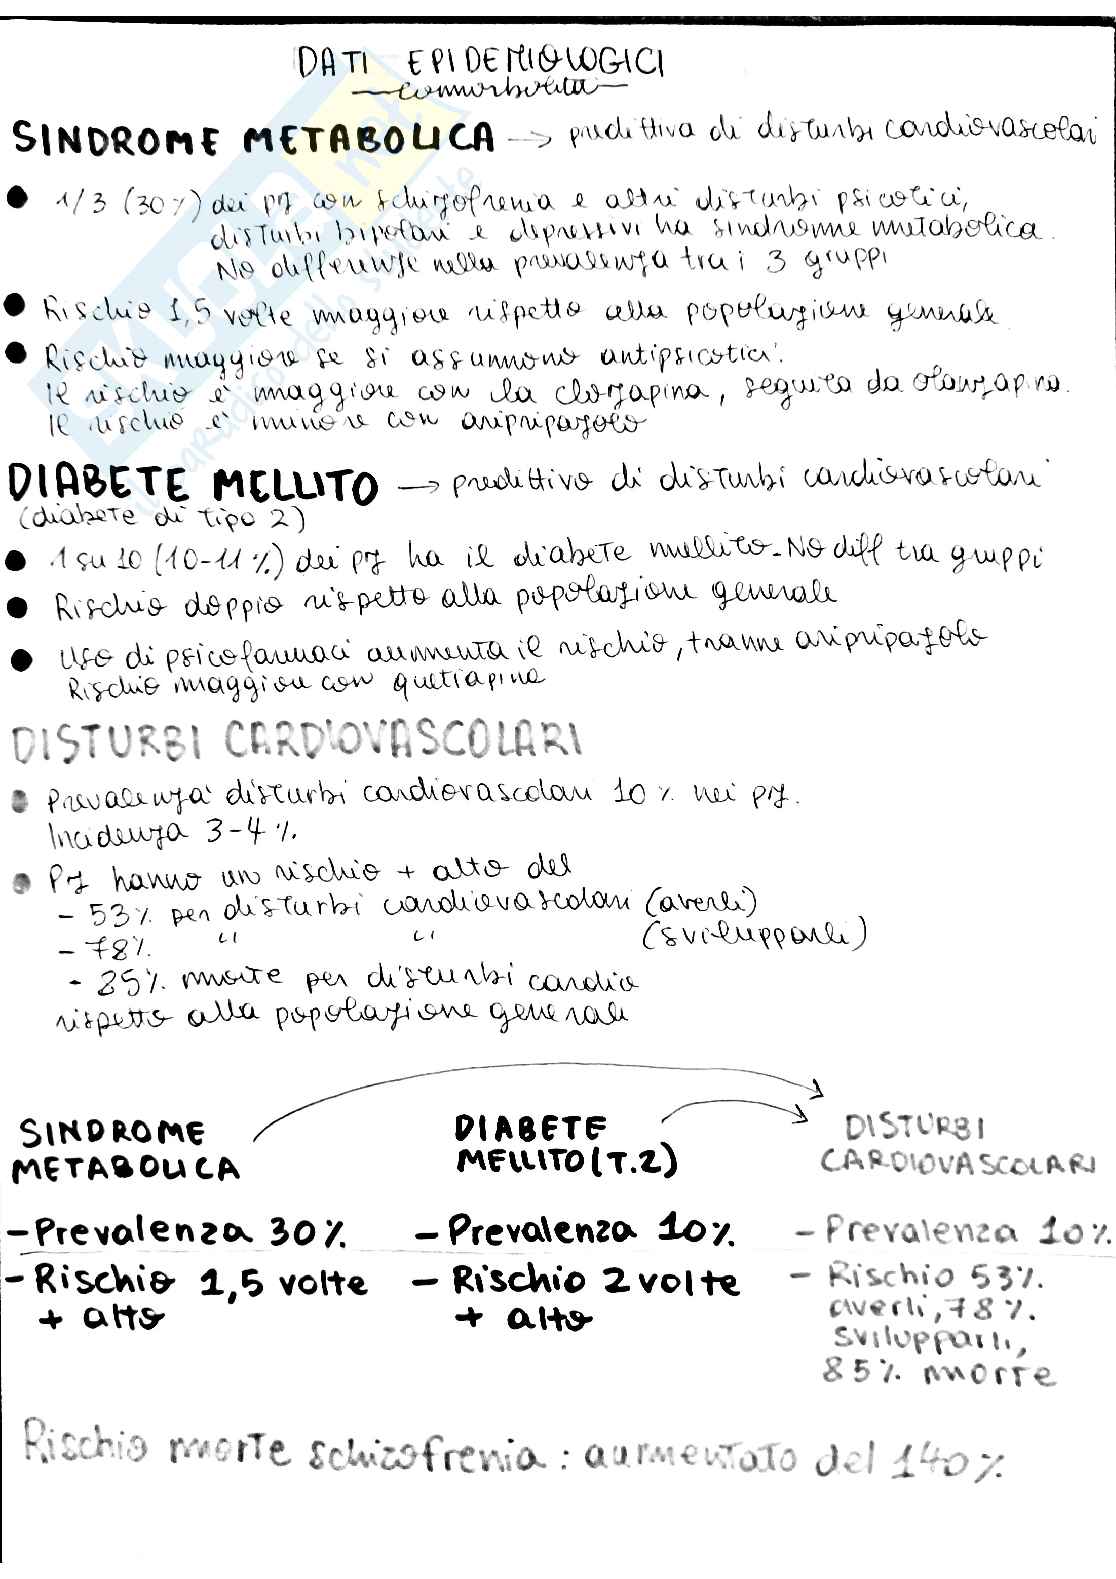 DATI EPIDEMIOLOGICI
comorbolità
SINDROME METABOLICA → predittiva di disturbi cardiovascolari
● 1/3 (30%) dei pz con schizofrenia e altri disturbi psicotici,
disturbi bipolari e depressivi ha sindrome metabolica.
No differenze nella prevalenza tra i 3 gruppi
● Rischio 1,5 volte maggiore rispetto alla popolazione generale
● Rischio maggiore se si assumono antipsicotici.
Il rischio è maggiore con la clozapina, seguita da olanzapina.
Il rischio è minore con aripripazolo
DIABETE MELLITO → predittivo di disturbi cardiovascolari
(diabete di tipo 2)
● 1 su 10 (10-11%) dei pz ha il diabete mellito. No diff tra gruppi
● Rischio doppio rispetto alla popolazione generale
● Uso di psicofarmaci aumenta il rischio, tranne aripripazolo
Rischio maggiore con quetiapina
DISTURBI CARDIOVASCOLARI
● Prevalenza disturbi cardiovascolari 10% nei pz.
Incidenza 3-4%.
● Pz hanno un rischio + alto del
- 53% per disturbi cardiovascolari (averli)
- 78% " " (svilupparli)
- 85% morte per disturbi cardio
rispetto alla popolazione generale
SINDROME METABOLICA
DIABETE MELLITO (T.2)
DISTURBI CARDIOVASCOLARI
- Prevalenza 30%
- Prevalenza 10%
- Prevalenza 10%
- Rischio 1,5 volte + alto
- Rischio 2 volte + alto
- Rischio 53% averli, 78% svilupparli, 85% morte
Rischio morte schizofrenia: aumentato del 140%